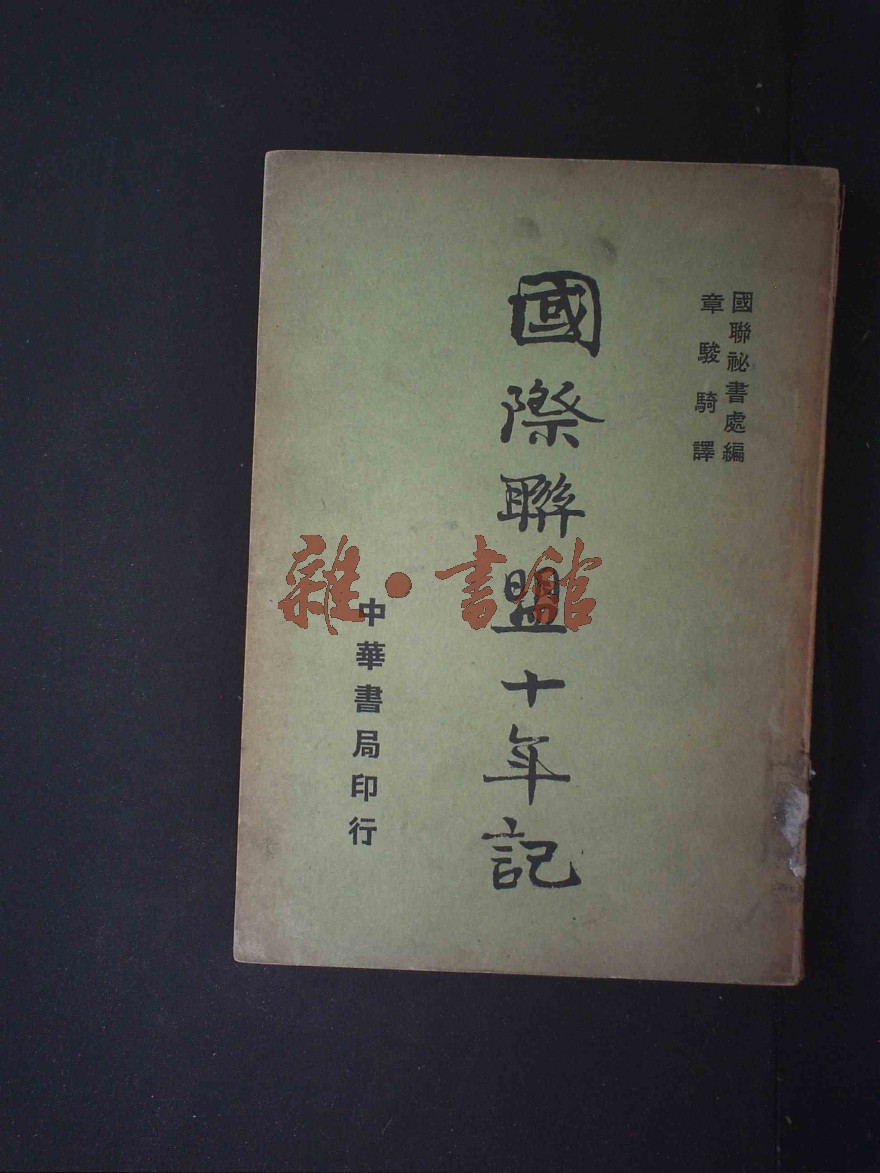 國聯祕書處編
章駿騎譯
國際聯盟十年記
中華書局印行
雜·書館